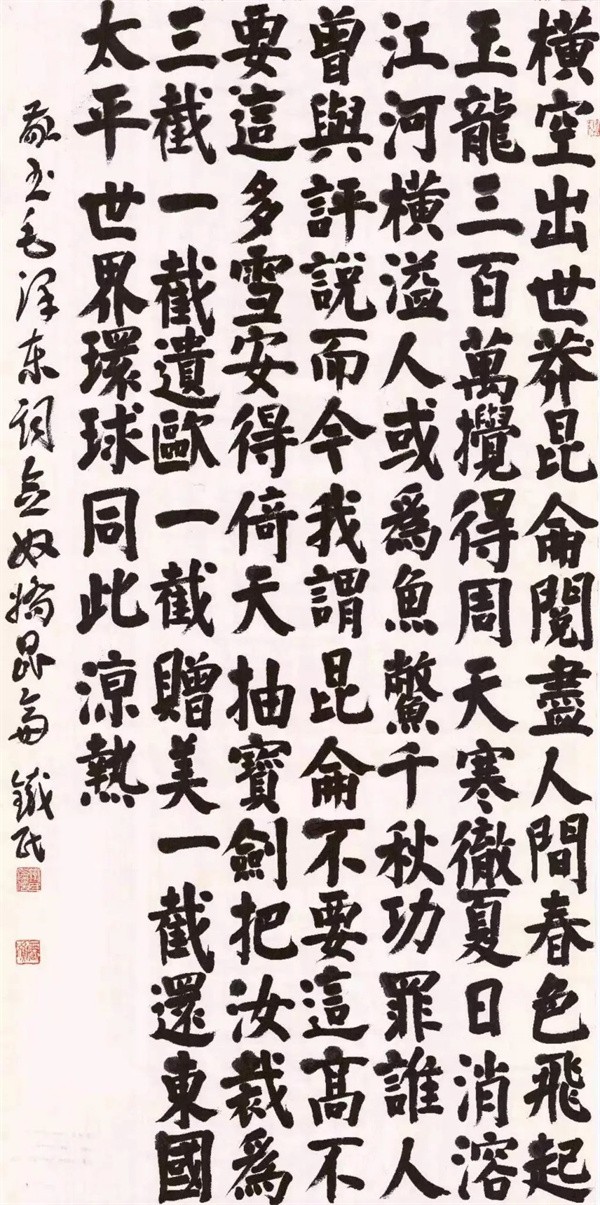 橫空出世莽昆侖閱盡人間春色飛起
玉龍三百萬攪得周天寒徹夏日消溶
江河橫溢人或爲魚鱉千秋功罪誰人
曾與評說而今我謂昆侖不要這高不
要這多雪安得倚天抽寶劍把汝裁爲
三截一截遺歐一截贈美一截還東國
太平世界環球同此涼熱
敬书毛泽东词念奴嬌昆侖 鐵民